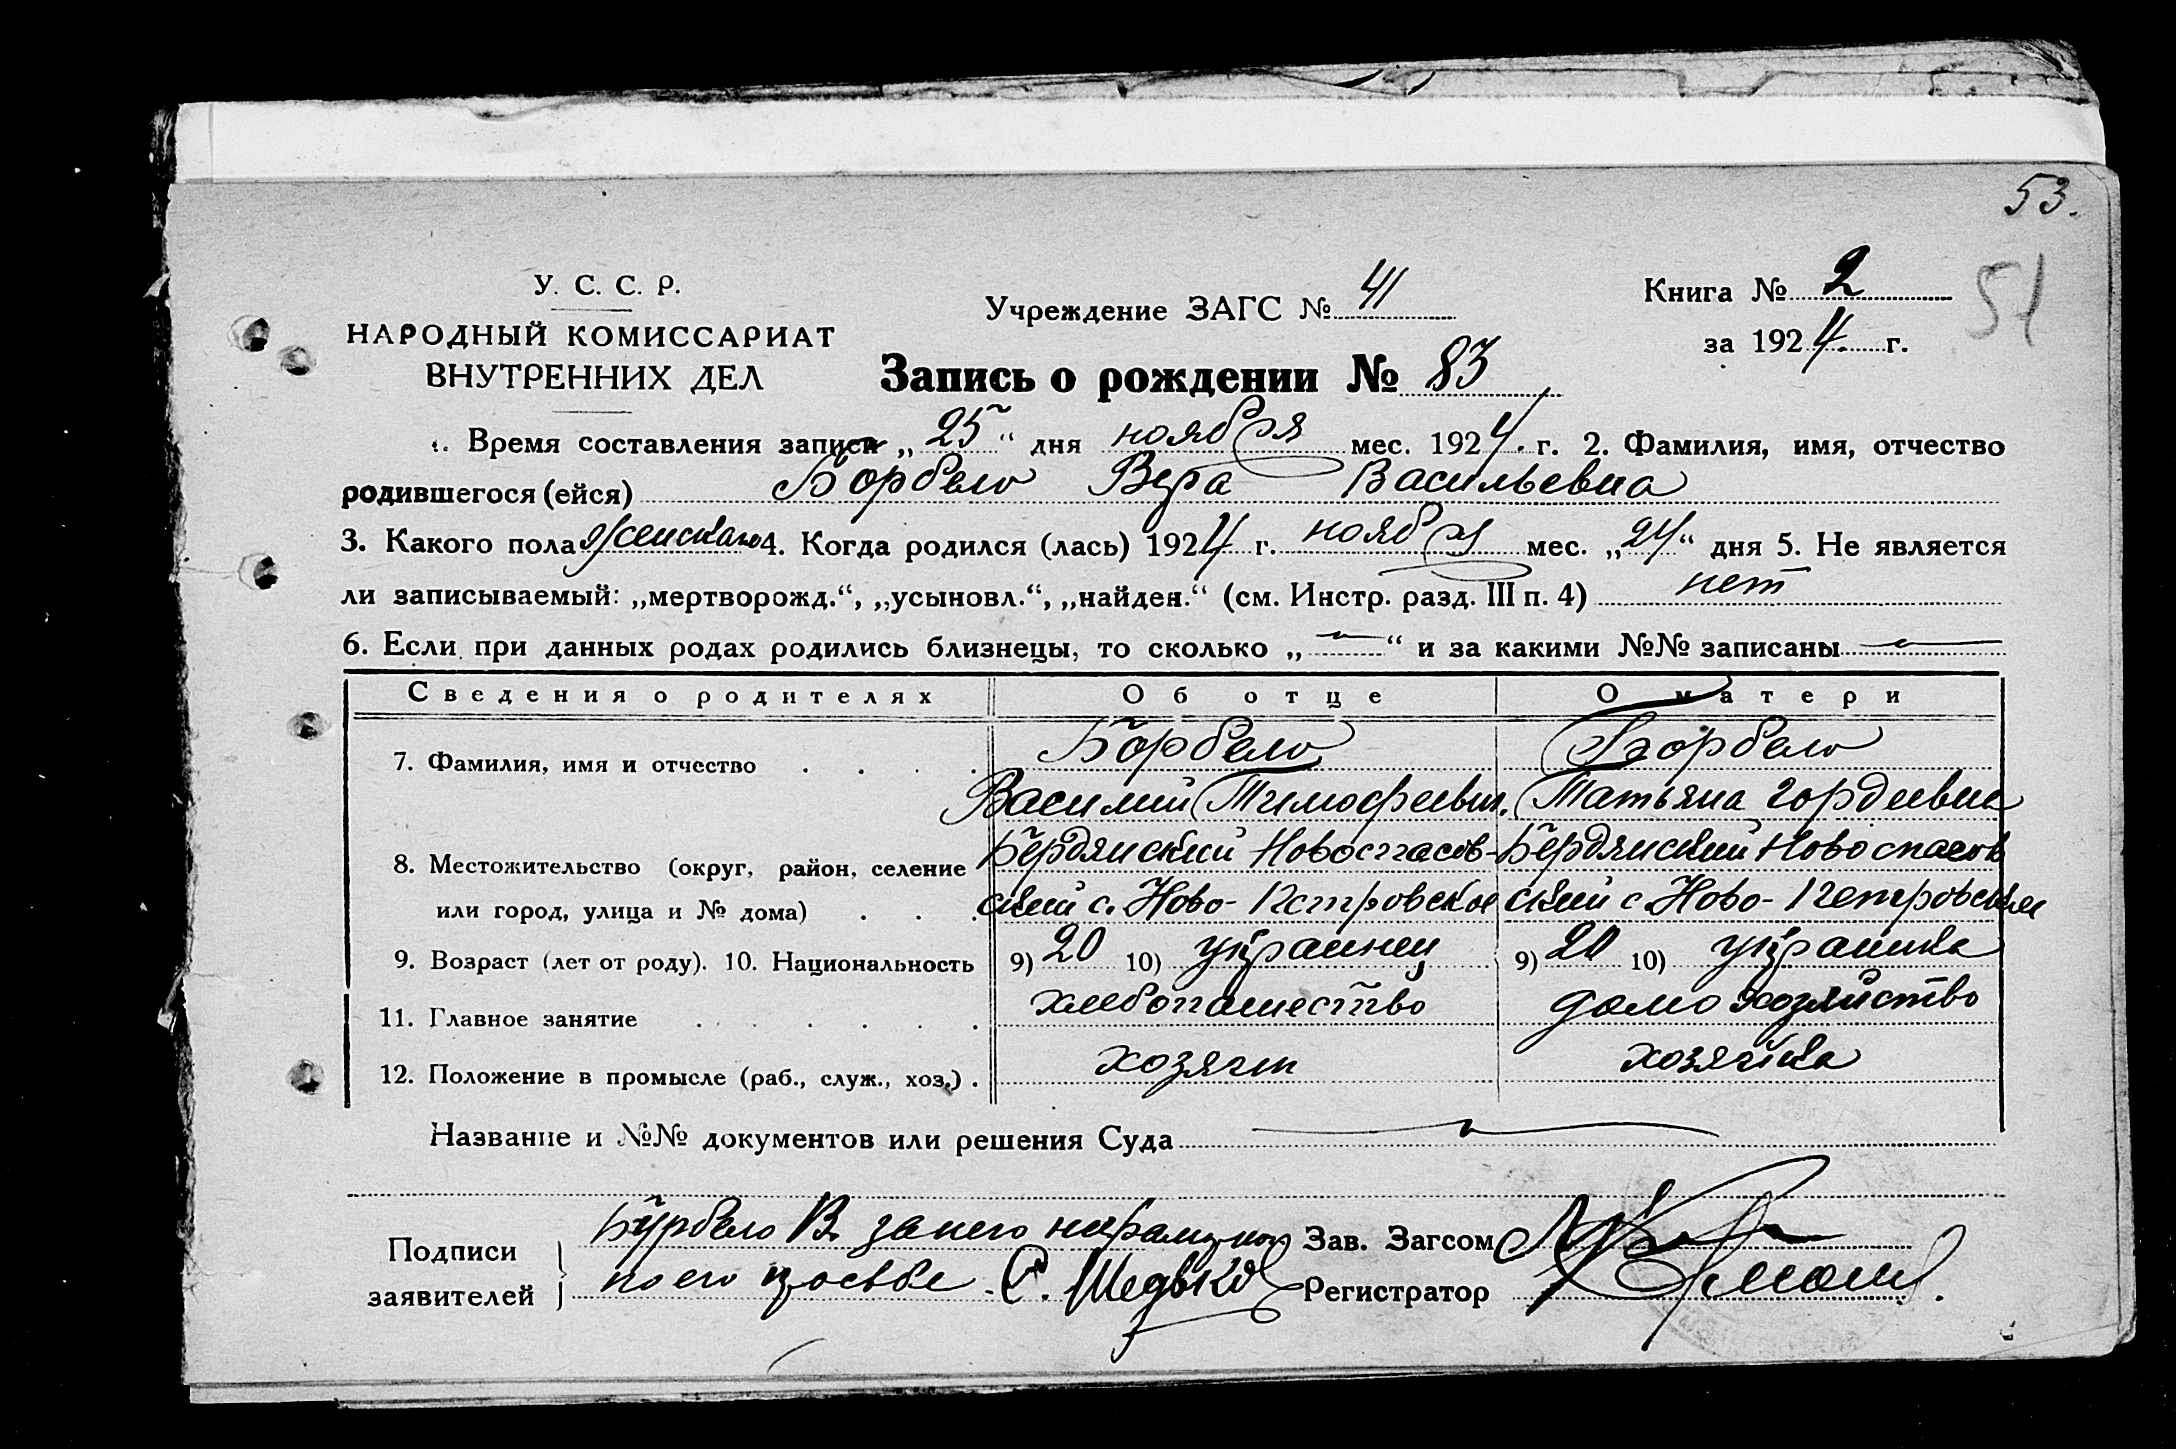 53.
51
У. С. С. Р.
НАРОДНЫЙ КОМИССАРИАТ
ВНУТРЕННИХ ДЕЛ
Учреждение ЗАГС № 41
Книга № 2
за 1924. г.
Запись о рождении № 83
1. Время составления записи „25“ дня ноября мес. 1924. г. 2. Фамилия, имя, отчество
родившегося (ейся) Борбело Вера Васильевна
3. Какого пола женскаго 4. Когда родился (лась) 1924 г. ноября мес. „24“ дня 5. Не является
ли записываемый: „мертворожд.“, „усыновл.“, „найден.“ (см. Инстр. разд. III п. 4) нет
6. Если при данных родах родились близнецы, то сколько „—“ и за какими №№ записаны —
Сведения о родителях Об отце О матери
7. Фамилия, имя и отчество Борбело Борбело
Василий Тимофеевич. Татьяна Гордеевна
8. Местожительство (округ, район, селение Бердянский Новоспасов- Бердянский Новоспасов
или город, улица и № дома) ский с. Ново-Петровское ский с. Ново-Петровское
9. Возраст (лет от роду). 10. Национальность 9) 20 10) украинец 9) 20 10) украинка
11. Главное занятие хлебопашество домохозяйство
12. Положение в промысле (раб., служ., хоз.) . хозяин хозяйка
Название и №№ документов или решения Суда —
Подписи заявителей Бурбело В. за него неграмотного Зав. Загсом
по его просьбе С. Шедько Регистратор